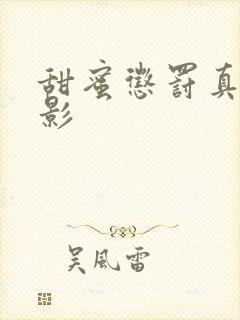 甜蜜懲罰真
影
吴風雷